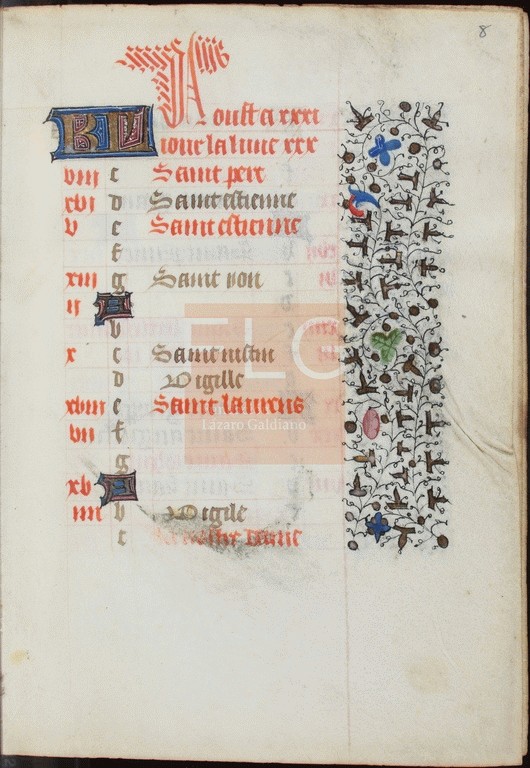 8
Aoust a xxxi
KL iours la lune xxx
viii c Saint pere
xvi d Saint estienne
v e Saint estienne
f
xiii g Saint yon
ii A
b
x c Saint iustin
d Vigille
xviii e Saint laurens
vii f
g
xv A
iiii b Vigile
c nostre dame
FLG
Lázaro Galdiano